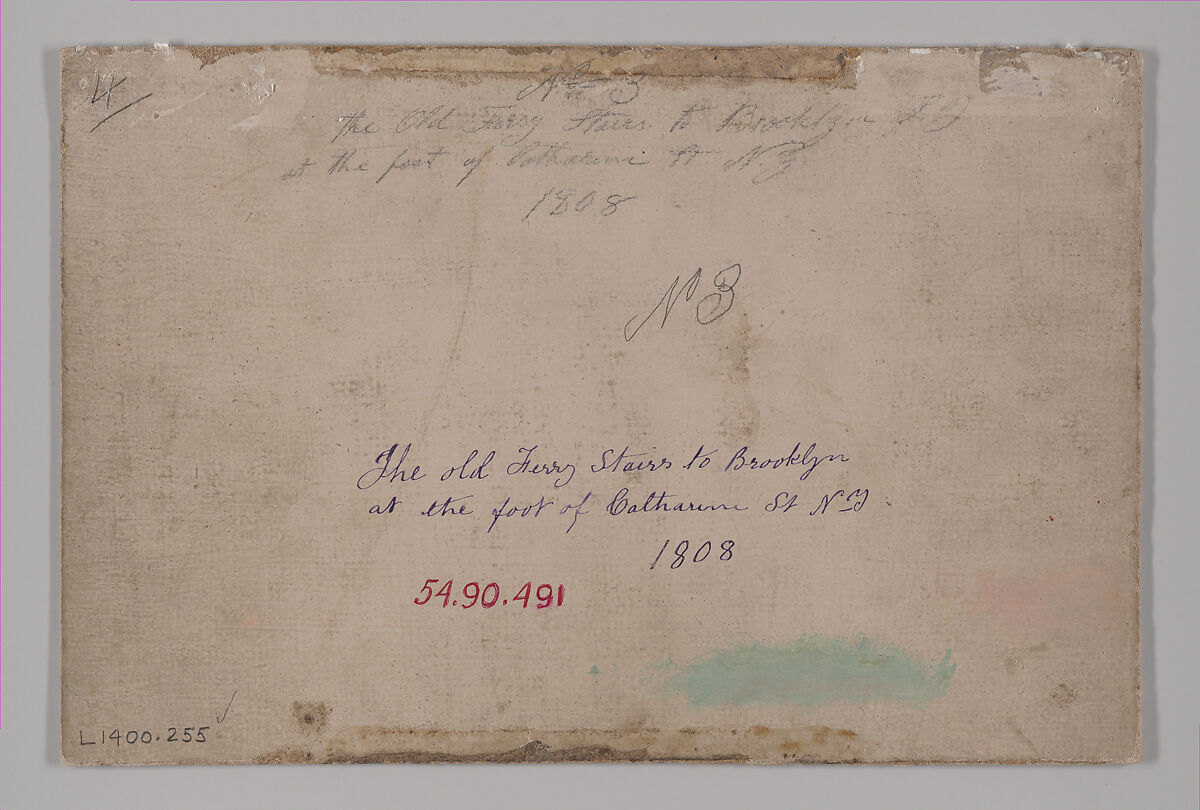 4
No 3
The Old Ferry Stairs to Brooklyn
at the foot of Catharine St NY
1808
No 3
The old Ferry Stairs to Brooklyn
at the foot of Catharine St NY
1808
54.90.491
L1400.255